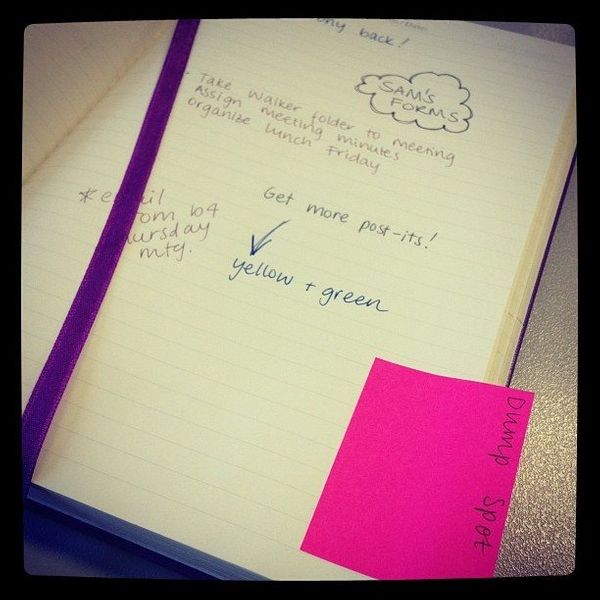 back!
SAM'S
FORMS
Take Walker folder to meeting
Assign meeting minutes
organize lunch Friday
Get more post-its!
yellow + green
b4
mtg.
Dump Spot